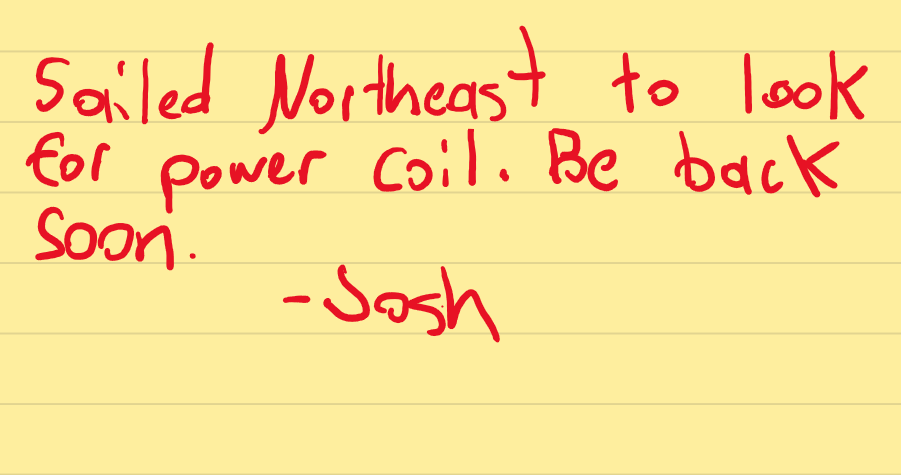 Sailed Northeast to look
for power coil. Be back
soon.
-Josh